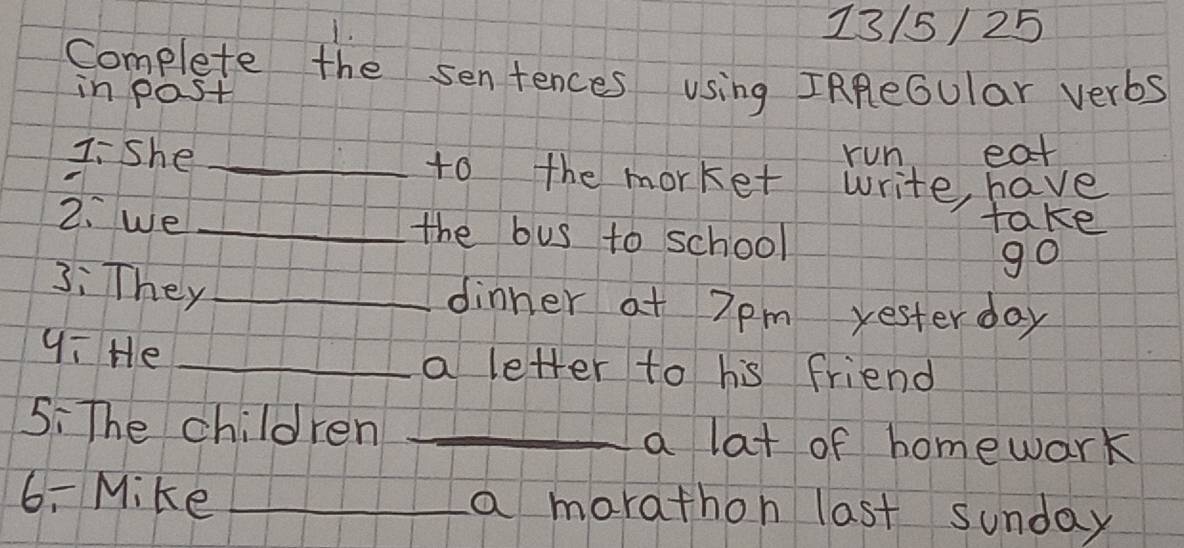 1.
13/5/25
Complete the sentences using IRReGular verbs
in past
1- She ________ to the market run, eat
write, have
2- we ________ the bus to school take
go
3- They ________ dinner at 7pm yesterday
4- He ________ a letter to his friend
5- The children ________ a lat of homework
6- Mike ________ a marathon last sunday